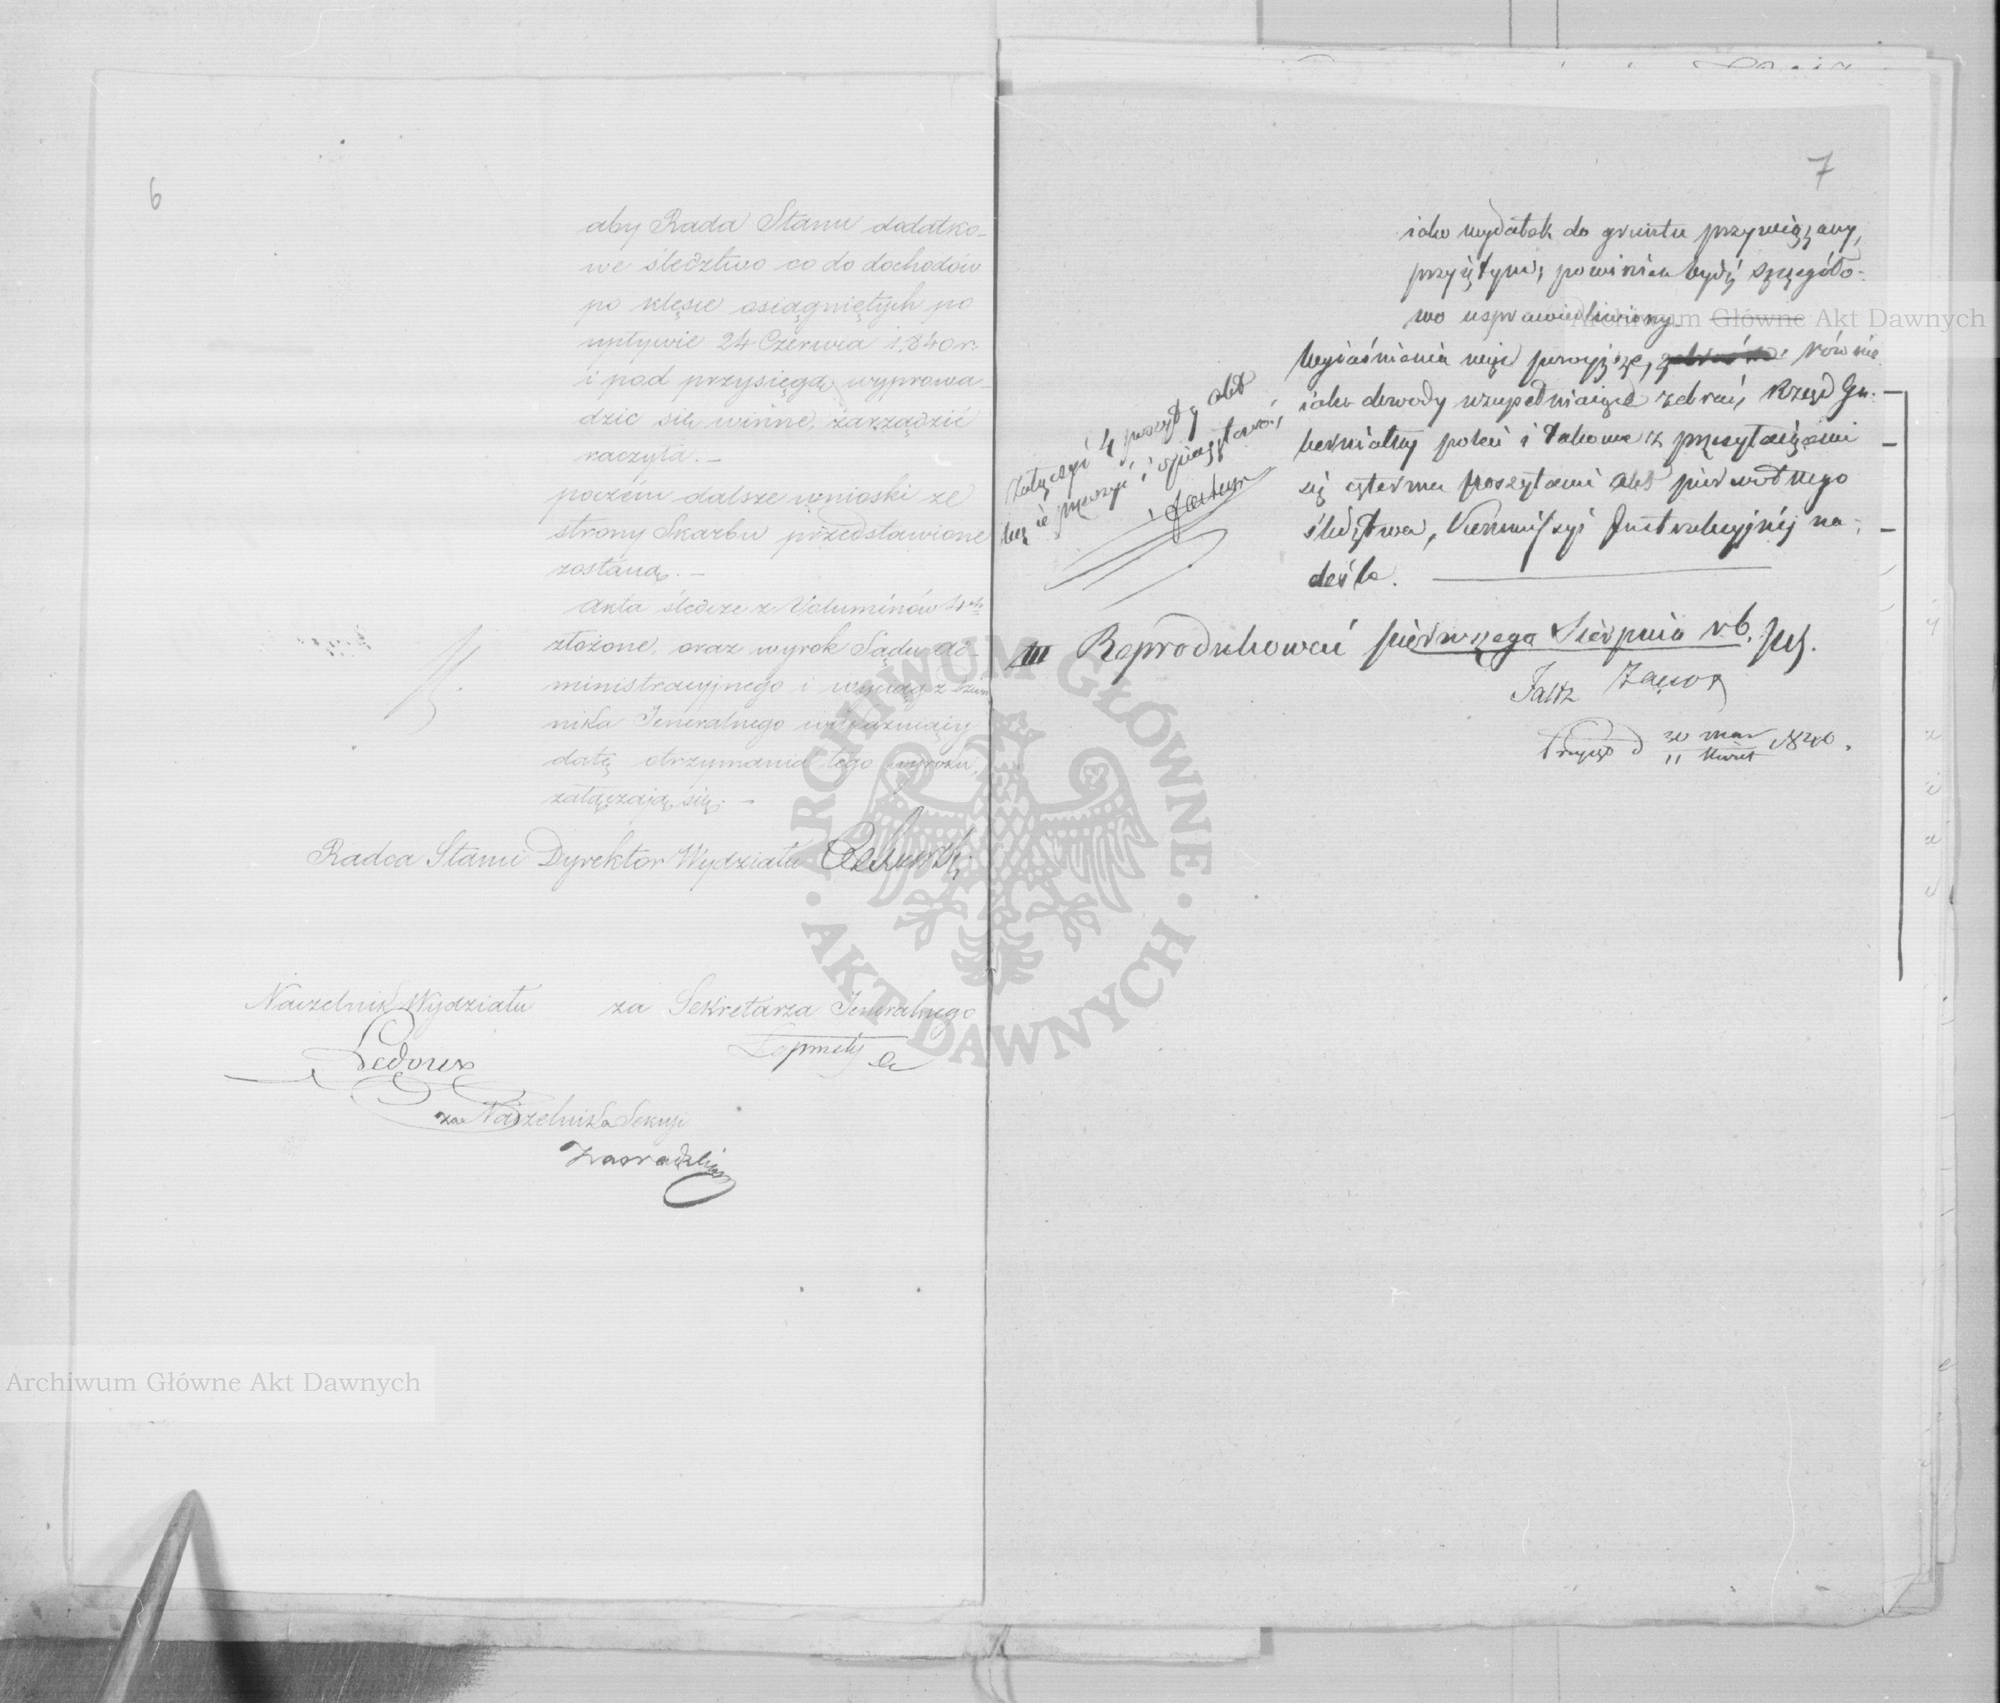 6
aby Rada Stanu dodatko-
we śledztwo co do dochodów
po klęsce osiągniętych po
upływie 24 Czerwca 1840 r.
i pod przysięgą wyprowa-
dzić się winne, zarządzić
raczyła. —
poczém dalsze wnioski ze
strony Skarbu przedstawione
zostaną. —
Akta śledcze z Voluminów 4ch
złożone, oraz wyrok Sądu Ad-
ministracyjnego i wyciąg z Dzien
nika Jeneralnego wskazujący
datę otrzymania tego wyroku,
załączają się. —
Radca Stanu Dyrektor Wydziału
Naczelnik Wydziału za Sekretarza Jeneralnego
za Naczelnika Sekcyi
7
iako wydatek do gruntu przywiązany,
przyiętym, powinien bydź szczegóło-
wo usprawiedliwiony.
Wyiaśnienia więc powyższe, równie
iako dowody uzupełniaiące zebrać, Rząd Gu-
bernialny poleci i takowe z przesyłaiącemi
się czterma poszytami akt pierwotnego
śledztwa, Kommissyi Instrukcyjnéj na-
deśle. —
Załączyć 4 poszyty akt
III Reprodukować pierwszego Sierpnia r b.
Przyięto d 30 mar 1846.
11 Kwiet
Archiwum Główne Akt Dawnych
Archiwum Główne Akt Dawnych
ARCHIWUM GŁÓWNE · AKT DAWNYCH ·